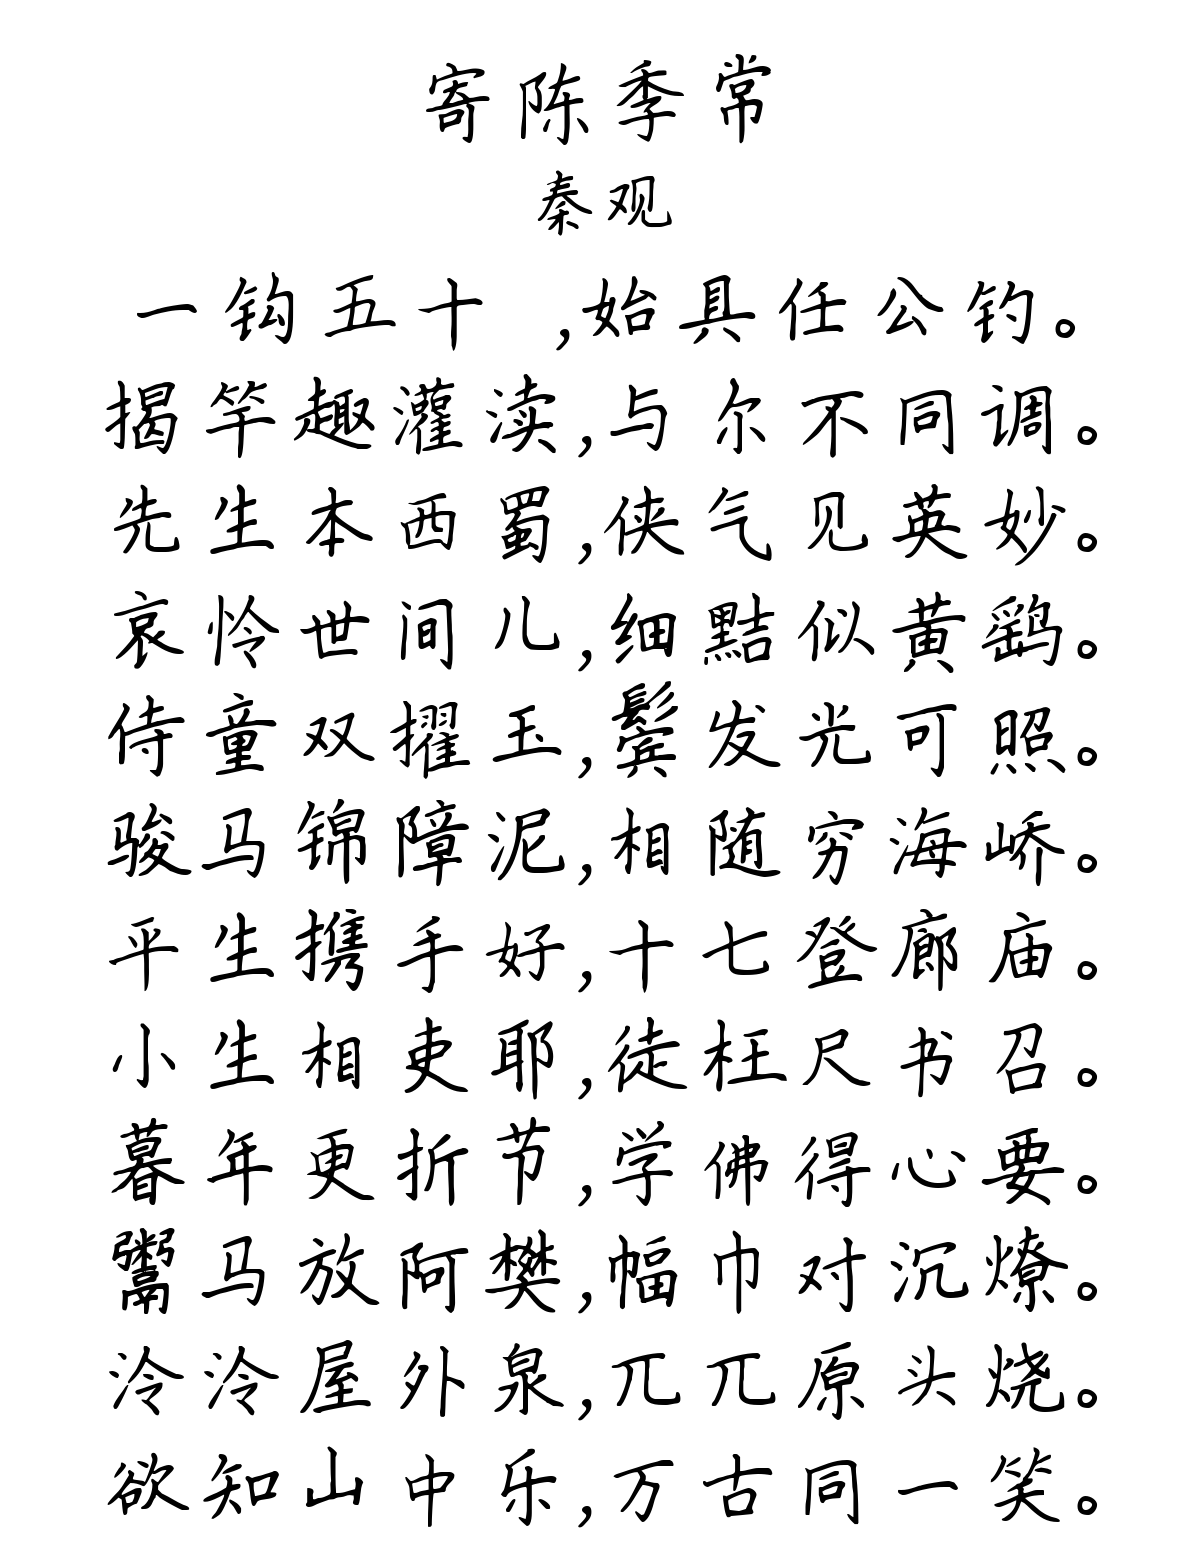 寄陈季常
秦观
一钩五十 ,始具任公钓。
揭竿趣灌渎,与尔不同调。
先生本西蜀,侠气见英妙。
哀怜世间儿,细黠似黄鹞。
侍童双擢玉,鬓发光可照。
骏马锦障泥,相随穷海峤。
平生携手好,十七登廊庙。
小生相吏耶,徒枉尺书召。
暮年更折节,学佛得心要。
鬻马放阿樊,幅巾对沉燎。
泠泠屋外泉,兀兀原头烧。
欲知山中乐,万古同一笑。